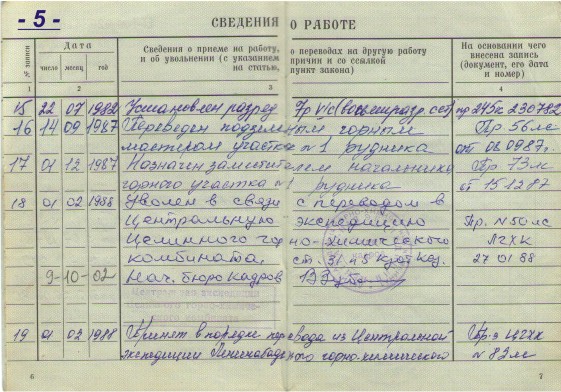 - 5 -
СВЕДЕНИЯ О РАБОТЕ
№ записи
Дата
число месяц год
Сведения о приеме на работу, о переводах на другую работу
и об увольнении (с указанием причин и со ссылкой
на статью, пункт закона)
На основании чего
внесена запись
(документ, его дата
и номер)
1 2 3 4
15 22 07 1982 Установлен разряд пр 245к 230782
16 14 09 1987 Переведен подземным горным Пр 56лс
мастером участка №1 рудника от 0987г.
17 01 12 1987 Назначен заместителем начальника Пр 73лс
горного участка №1 рудника от 151287
18 01 02 1988 Уволен в связи с переводом в
Центральную экспедицию Пр. №50лс
Целинного горно-химического ЛГХК
комбината, ст. 31 п5 Кзот Каз. 270188
9-10-02 Нач. бюро кадров
19 01 02 1988 Принят в порядке перевода из Центральной
экспедиции Ленинабадского горно-химического №83лс
6 7